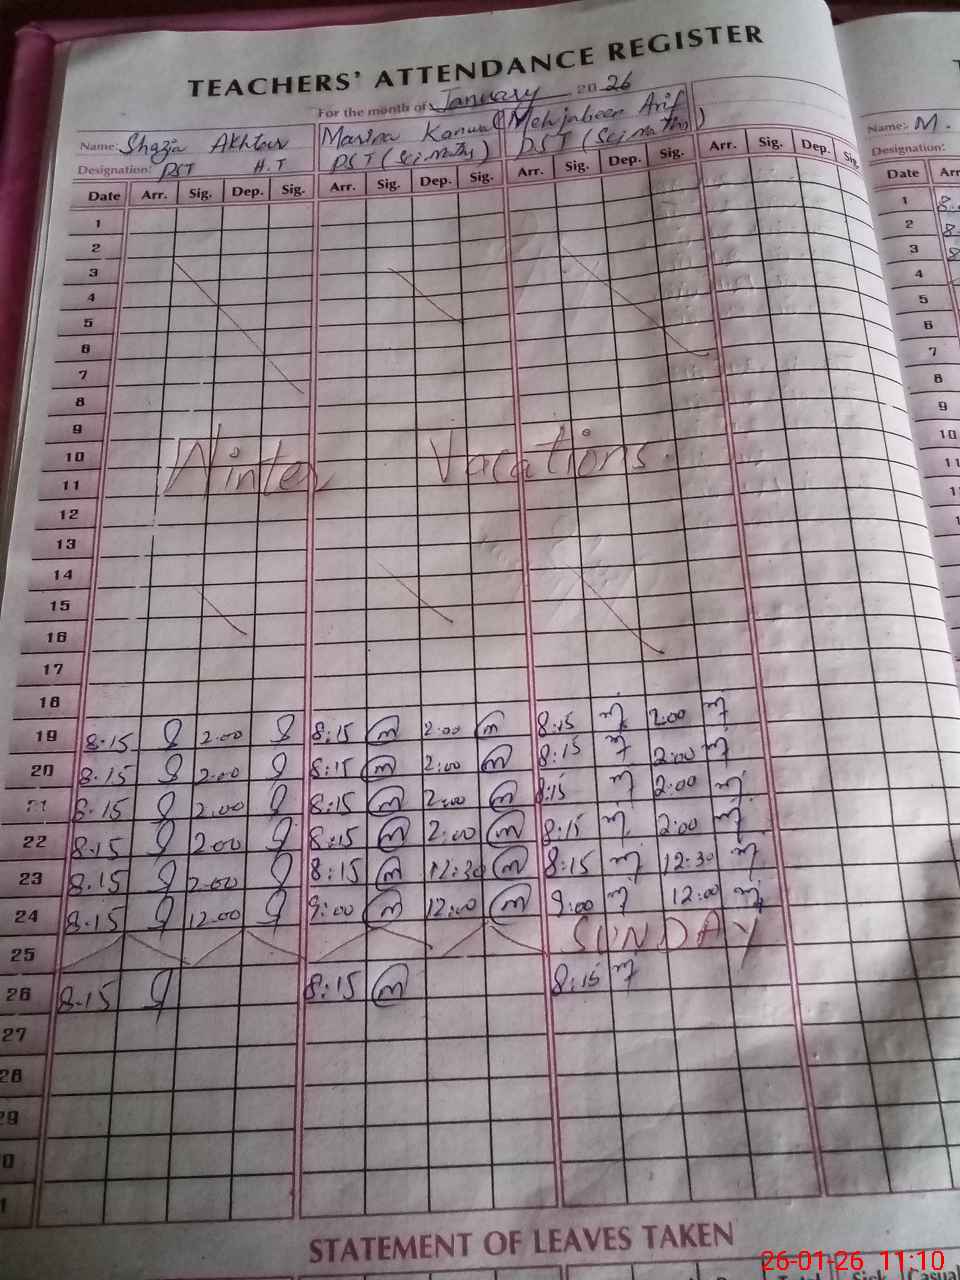 TEACHERS' ATTENDANCE REGISTER
For the month of January 2026
Name: Shazia Akhtar Marina Kanwal Mehjabeen Arif Name: M.
Designation: PST H.T PST (Sci.Maths) PST (Sci.Maths) Designation:
Date Arr. Sig. Dep. Sig. Arr. Sig. Dep. Sig. Arr. Sig. Dep. Sig. Arr. Sig. Dep. Sig. Date Arr
1 1
2 2
3 3
4 4
5 5
6 6
7 7
8 8
9 9
10 10
11 11
12
13
14
15
16
17
18
Winter Vacations
19 8.15 2.00 8:15 m 2:00 m 8:15 2:00
20 8.15 2.00 8:15 m 2:00 m 8:15 2:00
21 8.15 2.00 8:15 m 2:00 m 8:15 2:00
22 8.15 2.00 8:15 m 2:00 m 8:15 2:00
23 8.15 2.00 8:15 m 12:30 m 8:15 12:30
24 8.15 12.00 9:00 m 12:00 m 9:00 12:00
25 SUNDAY
26 8.15 8:15 m 8:15
27
28
29
0
1
STATEMENT OF LEAVES TAKEN
26-01-26 11:10